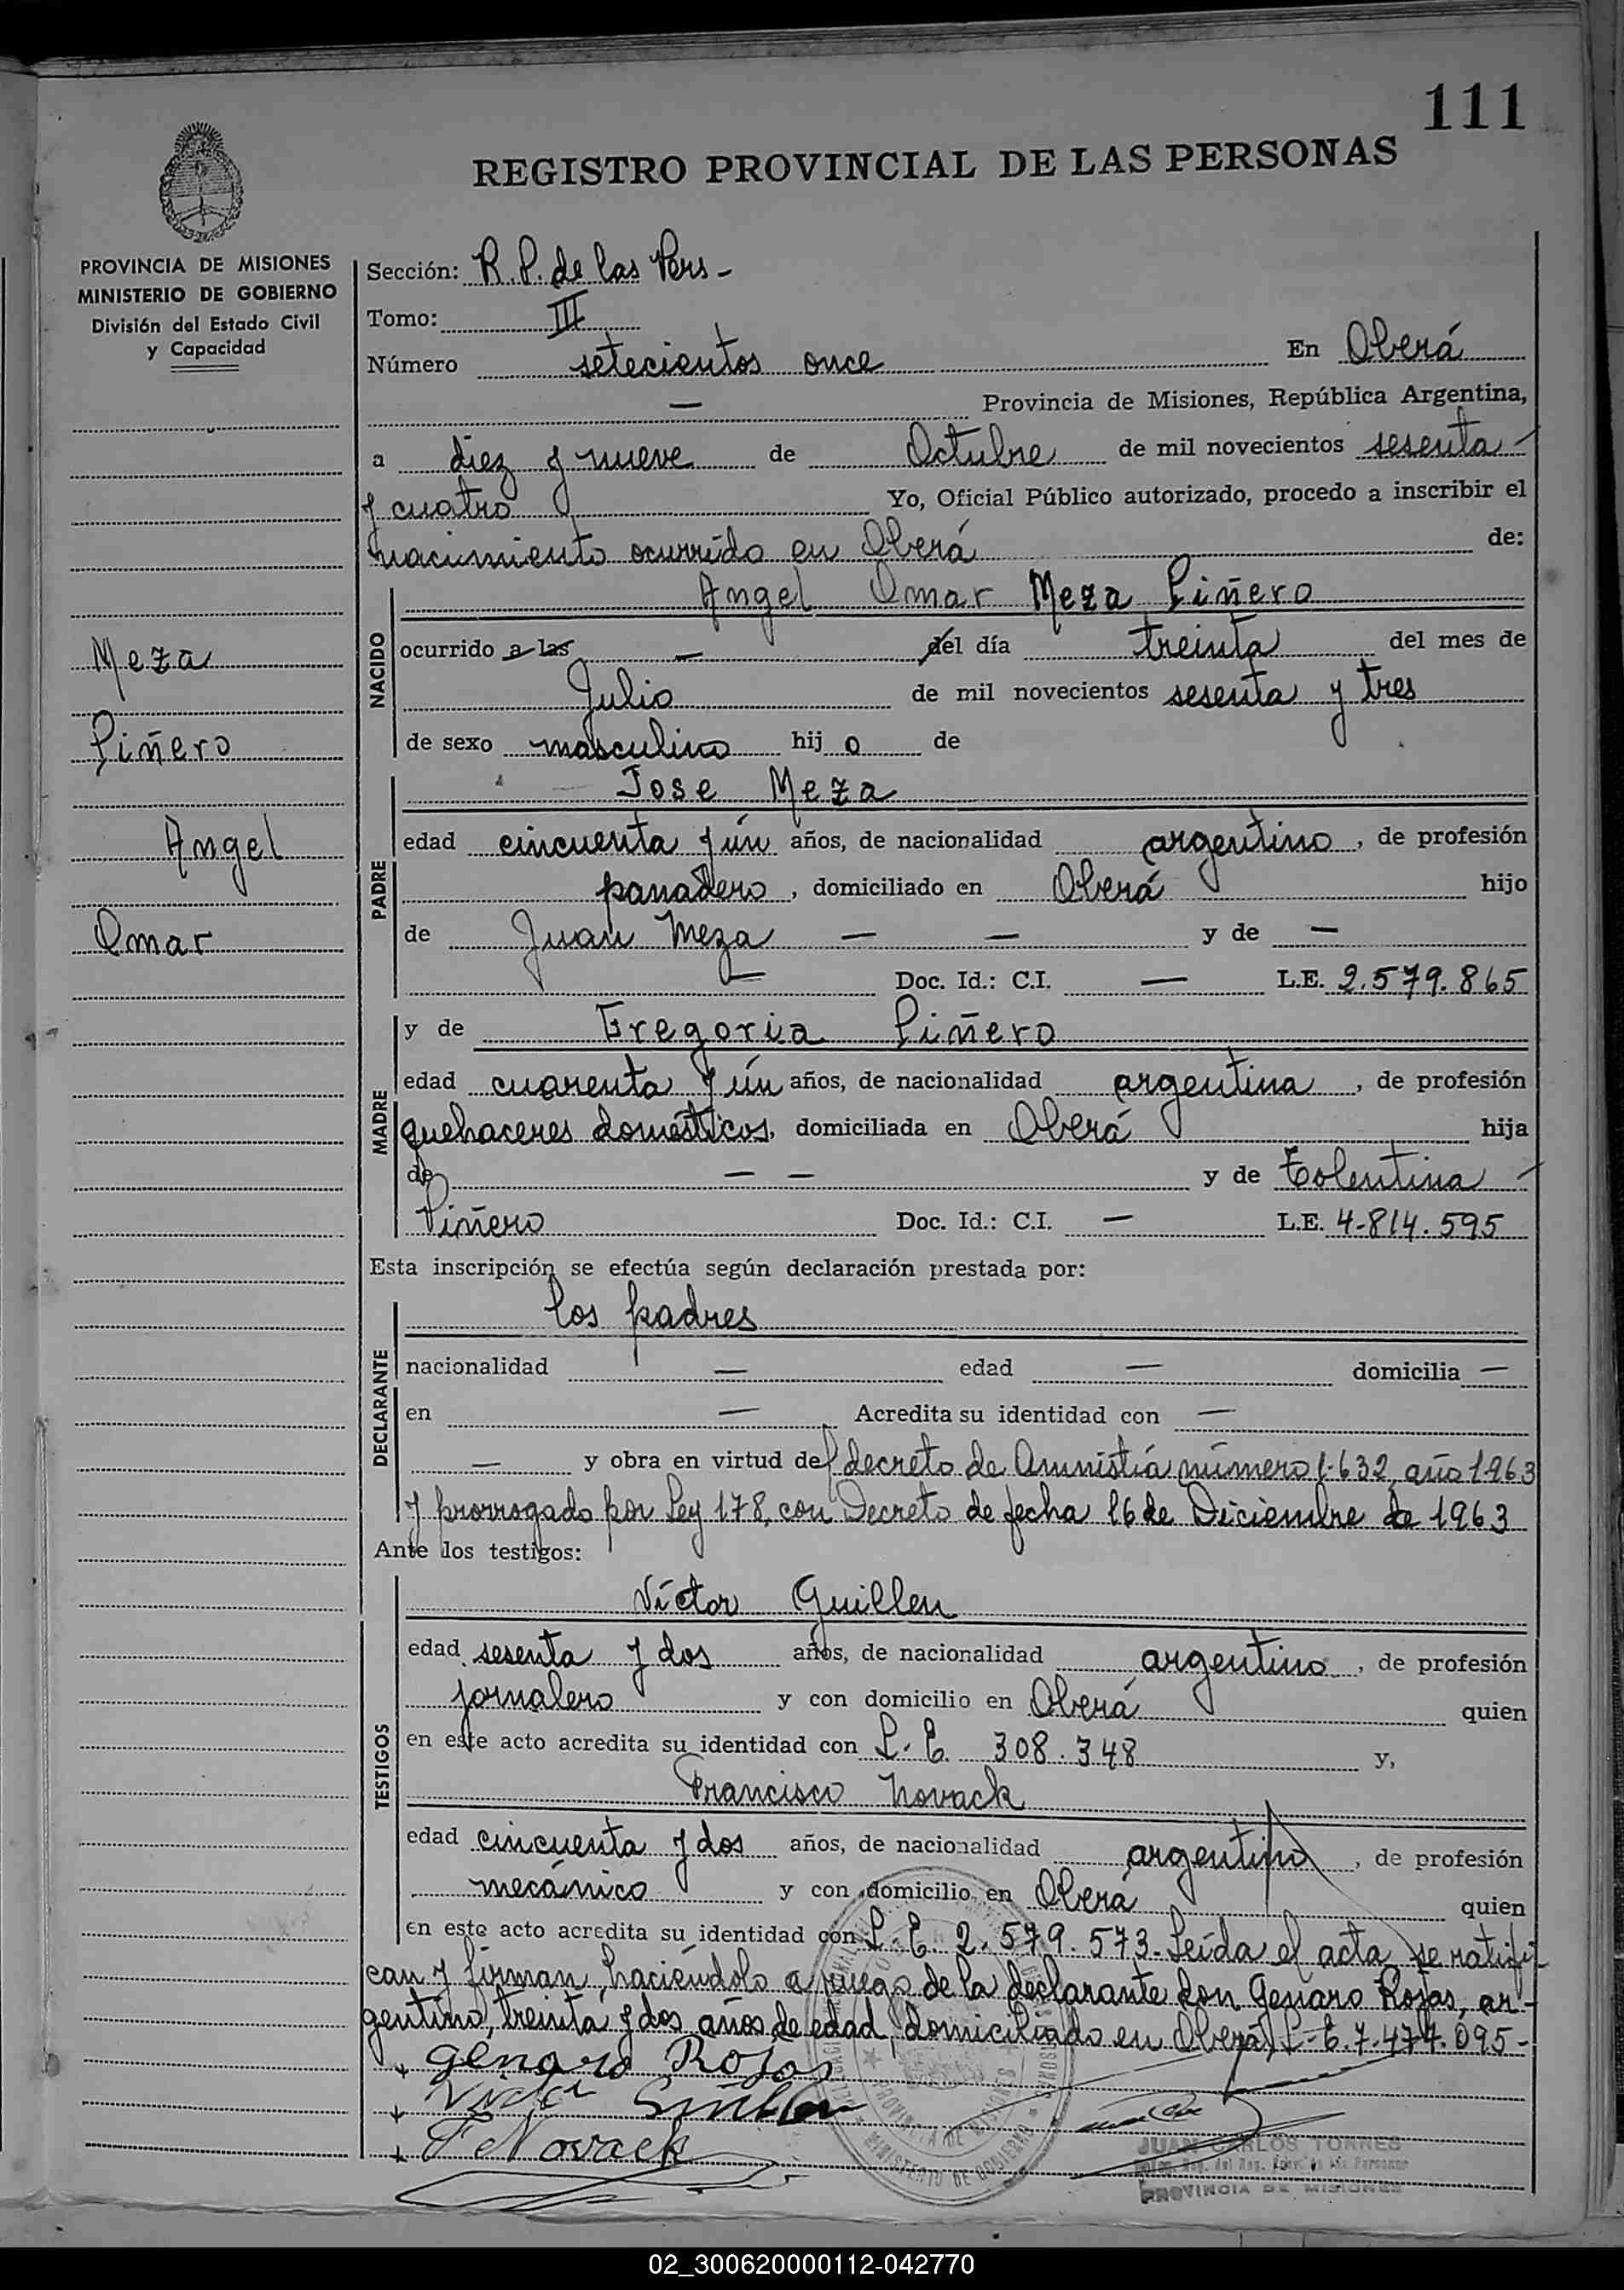 111
REGISTRO PROVINCIAL DE LAS PERSONAS
PROVINCIA DE MISIONES
MINISTERIO DE GOBIERNO
División del Estado Civil
y Capacidad
Meza
Piñero
Angel
Omar
Sección: R.P. de las Pers -
Tomo: III
Número setecientos once En Oberá
— Provincia de Misiones, República Argentina,
a diez y nueve de Octubre de mil novecientos sesenta -
y cuatro Yo, Oficial Público autorizado, procedo a inscribir el
nacimiento ocurrido en Oberá de:
NACIDO
Angel Omar Meza Piñero
ocurrido a las — del día treinta del mes de
Julio de mil novecientos sesenta y tres
de sexo masculino hij o de
PADRE
Jose Meza
edad cincuenta y ún años, de nacionalidad argentino, de profesión
panadero, domiciliado en Oberá hijo
de Juan Meza — — y de —
— Doc. Id.: C.I. — L.E. 2.579.865
MADRE
y de Gregoria Piñero
edad cuarenta y ún años, de nacionalidad argentina, de profesión
quehaceres domésticos, domiciliada en Oberá hija
de — — y de Tolentina -
Piñero Doc. Id.: C.I. — L.E. 4-814.595
Esta inscripción se efectúa según declaración prestada por:
DECLARANTE
los padres
nacionalidad — edad — domicilia —
en — Acredita su identidad con —
— y obra en virtud del decreto de Amnistía número 1.632, año 1963
y prorrogado por Ley 178, con Decreto de fecha 16 de Diciembre de 1963
Ante los testigos:
TESTIGOS
Víctor Guillen
edad sesenta y dos años, de nacionalidad argentino, de profesión
jornalero y con domicilio en Oberá quien
en este acto acredita su identidad con L.E. 308.348 y,
Francisco Novack
edad cincuenta y dos años, de nacionalidad argentino, de profesión
mecánico y con domicilio en Oberá quien
en este acto acredita su identidad con L.E. 2.579.573. Leída el acta, se ratifi
can y firman, haciéndolo a ruego de la declarante don Genaro Rojas, ar-
gentino, treinta y dos años de edad, domiciliado en Oberá, L.E. 7.474.095-
+ genaro Rojas
+ Guillen
+ F Novack
PROVINCIA DE MISIONES
MINISTERIO DE GOBIERNO
JUAN CARLOS TORRES
PROVINCIA DE MISIONES
02_300620000112-042770